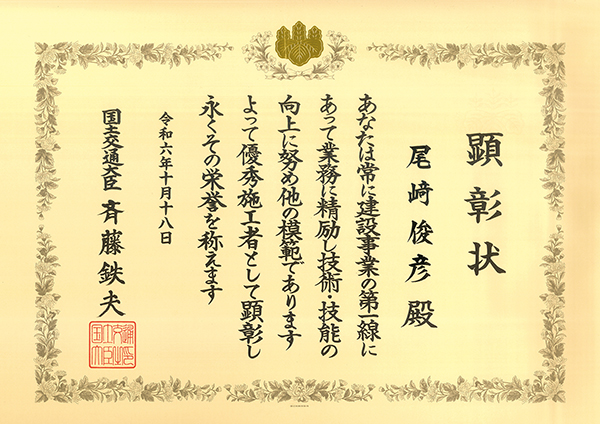 顕彰状
尾﨑俊彦殿
あなたは常に建設事業の第一線に
あって業務に精励し技術・技能の
向上に努め他の模範であります
よって優秀施工者として顕彰し
永くその栄誉を称えます
令和六年十月十八日
国土交通大臣 斉藤鉄夫